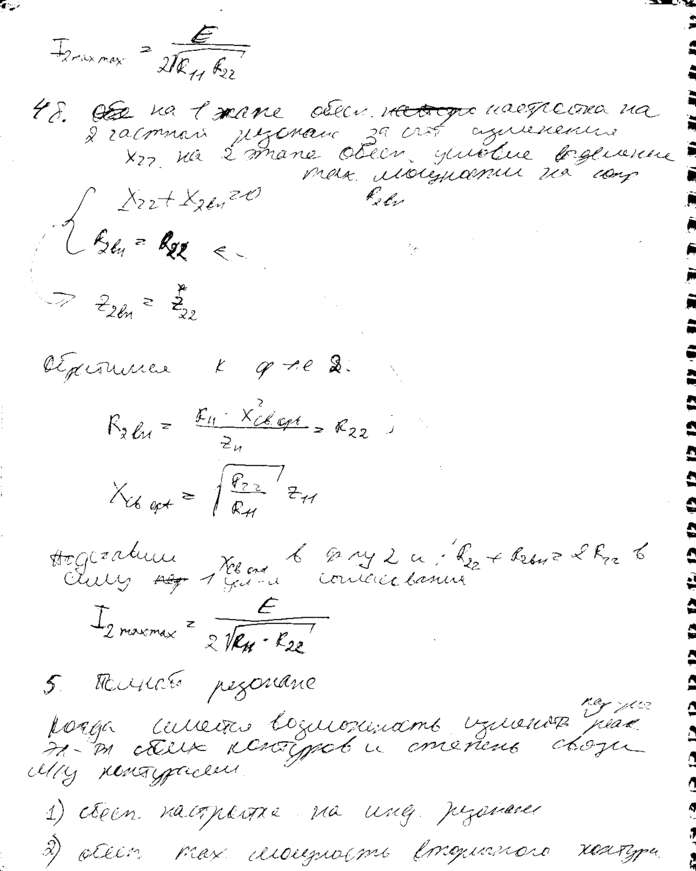 I₂maxmax = E / 2√R₁₁R₂₂
4б. на 1 этапе обесп. настройка на
2 частный резонанс за счёт изменения
X₂₂ на 2 этапе обесп. условие выделения
max. мощности на сопр
R₂вн
X₂₂ + X₂вн = 0
R₂вн = R₂₂ ←
⇒ Z₂вн = Z*₂₂
Обратимся к ф-ле 2.
R₂вн = R₁₁ · X²св opt / Z₁₁ = R₂₂ ;
Xсв opt = √(R₂₂/R₁₁) Z₁₁
Подставим Xсв opt в ф-лу 2 и : R₂₂ + R₂вн = 2R₂₂ в
силу 1 усл-я согласования
I₂maxmax = E / 2√R₁₁ · R₂₂
5. Полный резонанс
Когда имеется возможность изменять реак.
эл-ты обоих контуров и степень связи
м/у контурами
1) обесп. настройка на инд. резонанс
2) обесп max мощность вторичного контура